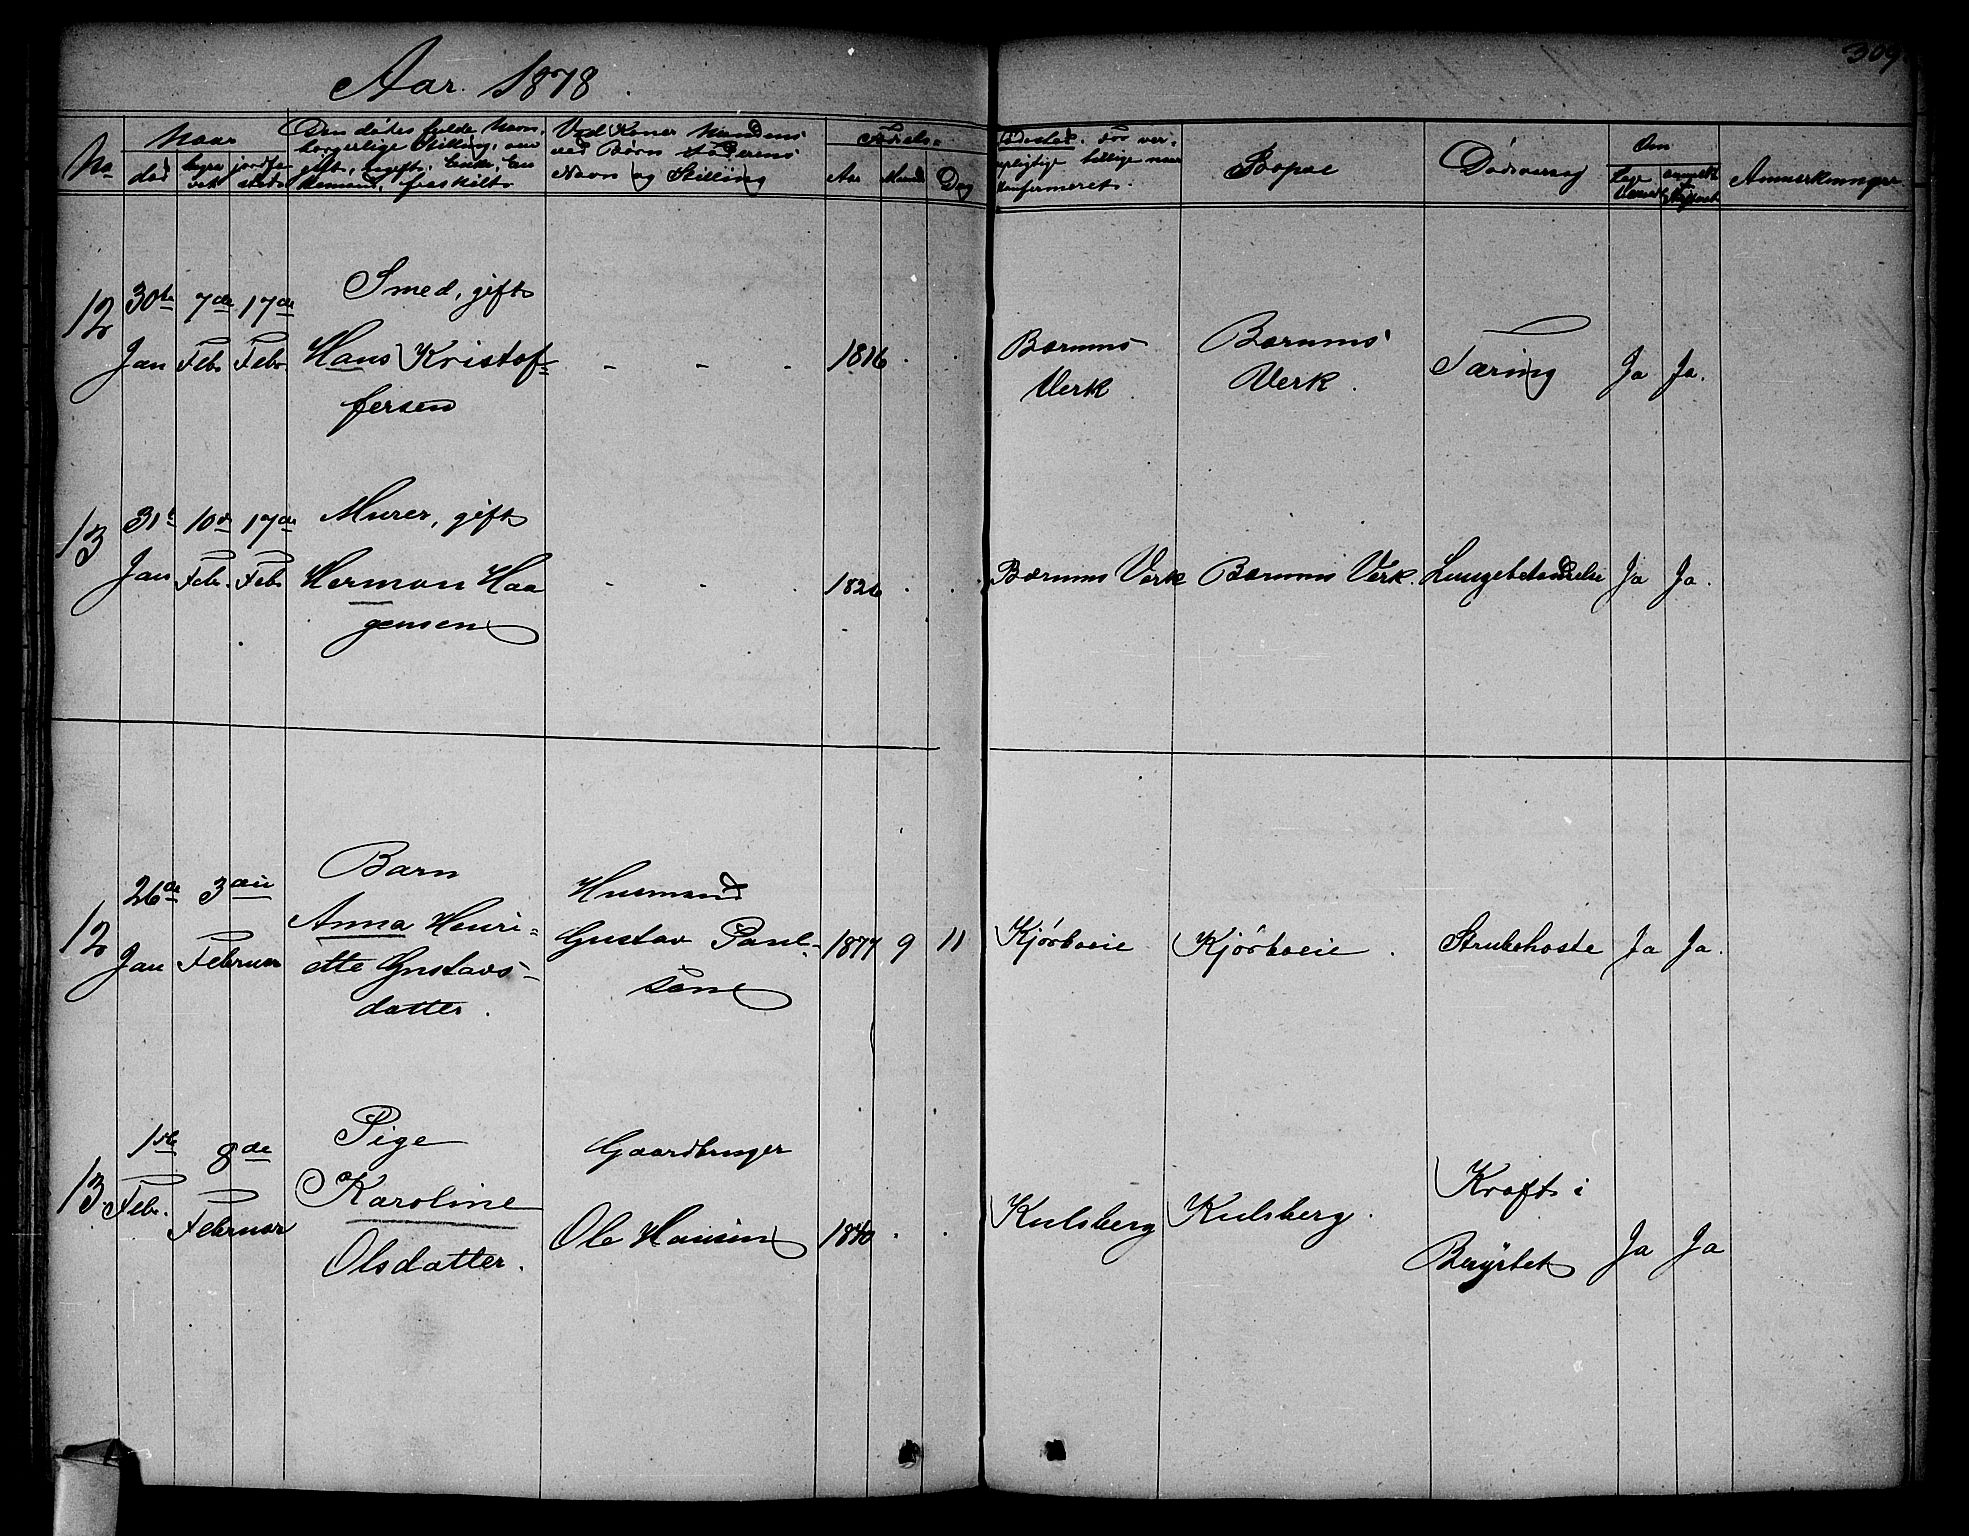 309.
Aar. 1878.
No
Naar
død
begra
vet
jordfæ
stet
Den dødes fulde Navn,
borgerlige Stilling, om
gift, ugift, Enke, En
kemand, fraskilt
Ved Koner Mandens
ved Børn Faderens
Navn og Stilling
Fødsels-
Aar
Maaned
Dag
Fødested. For ver-
nepligtige tillige naar
konfirmeret.
Bopæl
Dødsaarsag
Om
Anmærkninger
12
30te Jan
7de Febr
17de Febr
Smed, gift
Hans Kristof-
fersen
- - -
1816
. .
Bærums
Verk
Bærums
Verk.
Tæring
Ja Ja.
13
31te Jan
10de Febr.
17de Febr
Murer, gift
Herman Haa
gensen
. . .
1826
. .
Bærums Verk
Bærums Verk.
Lungebetændelse
Ja Ja.
12
26de Jan
3die Februar
Barn
Anna Henri-
ette Gustavs-
datter.
Husmand
Gustav Paul-
sen
1877 9 11
Kjørboeie
Kjørboeie.
Strubehoste
Ja Ja.
13
1ste Febr.
8de Februar
Pige
Karoline
Olsdatter.
Gaardbruger
Ole Hansen
1840
. .
Kulsberg
Kulsberg.
Kræft i
Brystet
Ja Ja